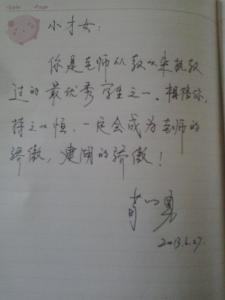 小才女：
你是老师从教以来执教
过的最优秀学生之一。相信你，
持之以恒，一定会成为老师的
骄傲，建湖的骄傲！
2013.6.27.